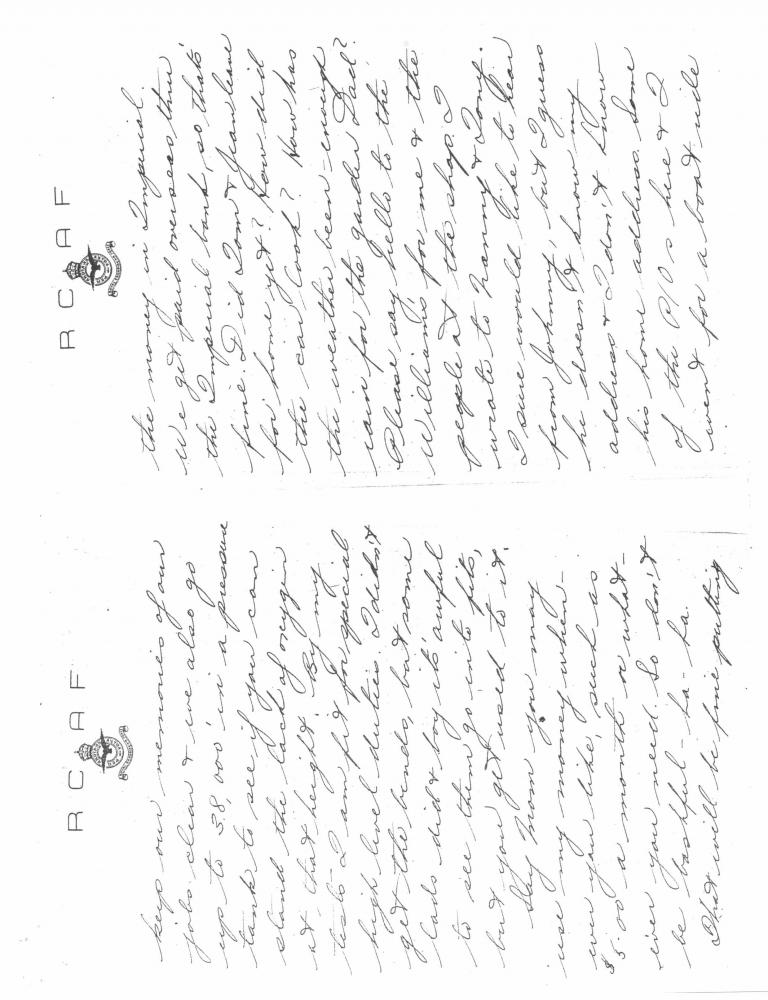 R C A F
keep our memories of our
jobs clear & we also go
up to 38,000' in a pressure
tank to see if you can
stand the lack of oxygen
at that height. By my
tests I am fit for special
high level duties. I didn't
get the bends, but some
lads did & boy it's awful
to see them go into fits,
but you get used to it.
Say Mom you may
use my money when-
ever you like, such as
$5.00 a month or what-
ever you need. So don't
be bashful - ha - ha.
That will be fine putting
R C A F
the money in Imperial
We get paid overseas thru
the Imperial bank, so that's
fine. Did Tom & Jean leave
for home yet? How did
the car look? How has
the weather been - enough
rain for the garden Dad?
Please say hello to the
Williams for me & the
people at the shop. I
wrote to Nanny & Tony.
I sure would like to hear
from Johnny, but I guess
he doesn't know my
address & I don't know
his home address. Some
of the P/Os here & I
went for a boat ride